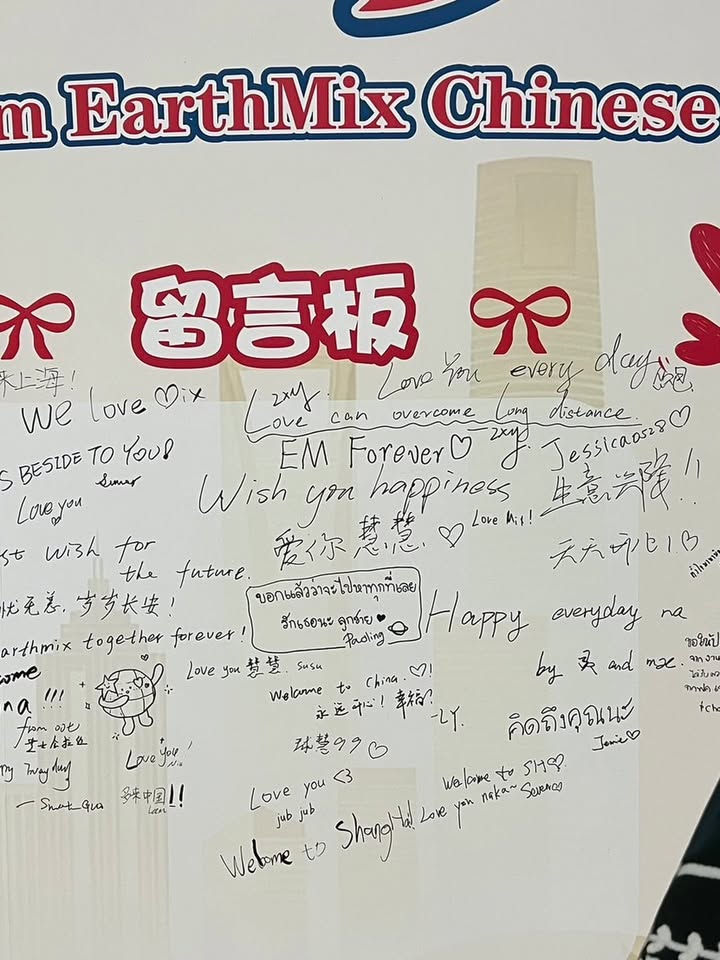 m EarthMix Chinese
留言板
来上海!
We love ♡ix
2xy.
Love You every day
Love can overcome Long distance.
2xy.
S BESIDE TO YOU!
Summer
Love you
EM Forever♡
Jessica0528♡
Wish you happiness
生意兴隆!!
爱你慧慧.♡
Love Mix!
天天开心!
st wish for
the future.
忧无恙,岁岁长安!
บอกแล้วว่าจะไปหาทุกที่เลย
รักเธอนะ ลูกชาย
Paoling
Happy everyday na
by and
arthmix together forever!
ome
na !!!
from oot
Love you
Nia
Love you 慧慧. susu
Welcome to China.♡!
永远开心!幸福!
-LY.
คิดถึงคุณนะ
Jennie♡
球慧99♡
多来中国!!
Love you <3
jub jub
Welcome to SH♡.
Welcome to ShangHai!
Love you naka~
Seven